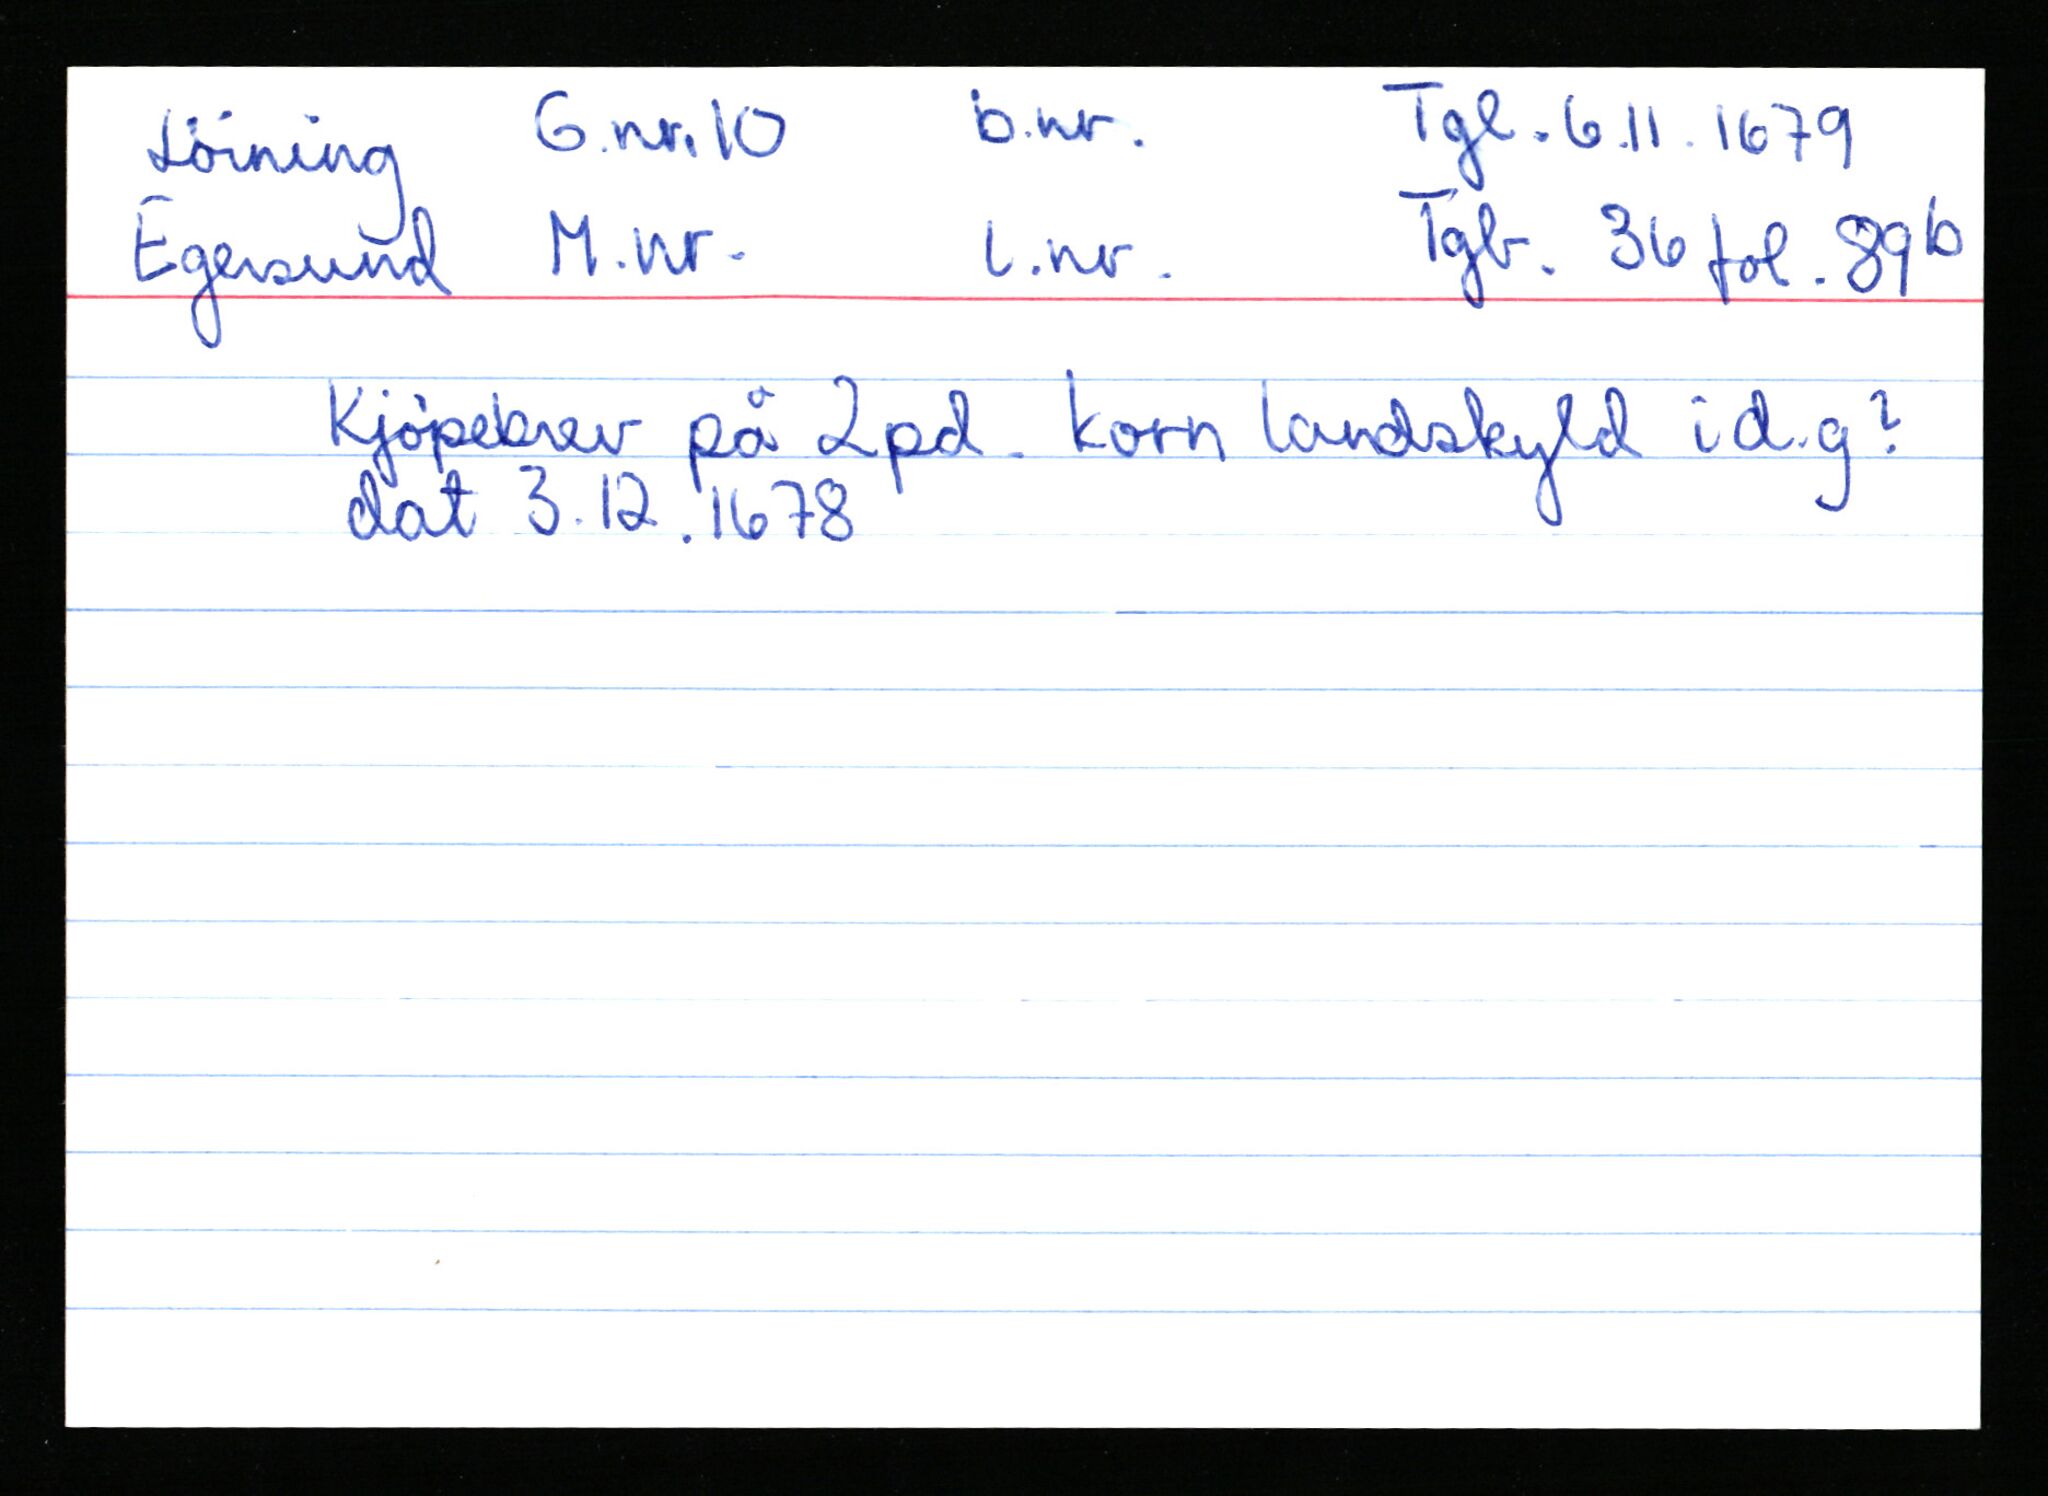 Löining G.nr.10 b.nr. Tgl. 6.11.1679
Egersund M.nr. l.nr. Tgb. 36 fol. 89b
Kjöpebrev på 2pd. korn landskyld i d.g?
dat 3.12.1678